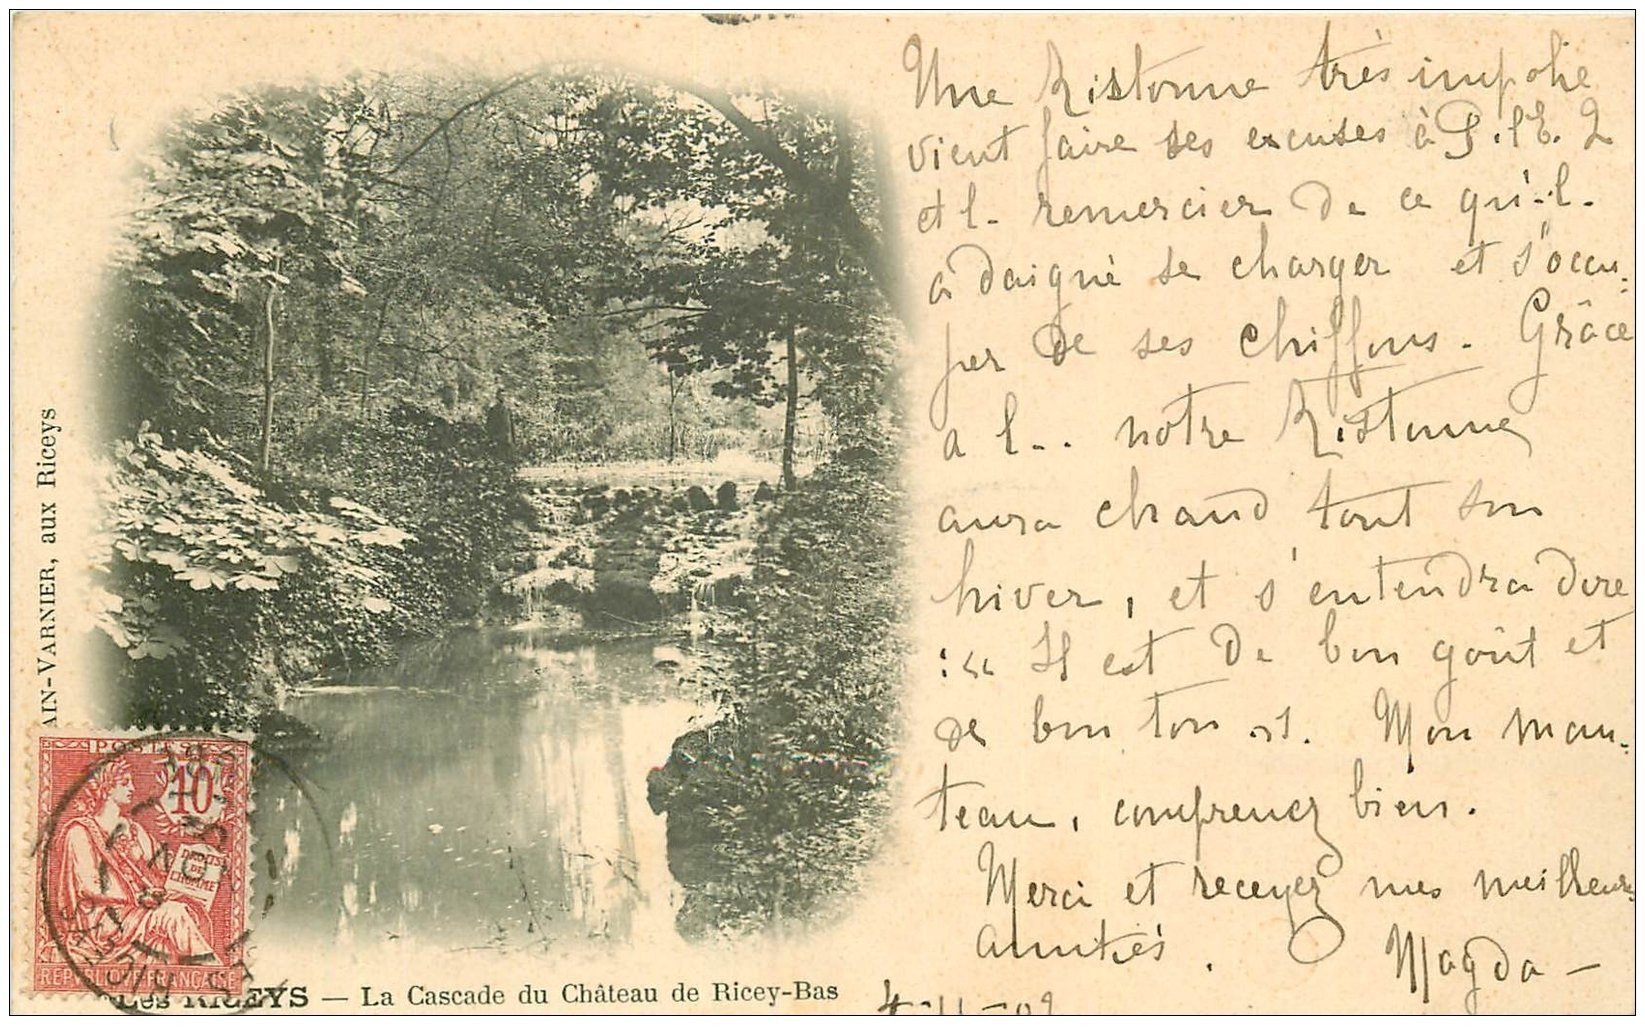 Une Ristonne très impolie
vient faire ses excuses à
et l- remercier de ce qui-l-
a daigné se charger et s'occu-
per de ses chiffons. Grâce
a l.. notre Ristonne
aura chaud tout son
hiver, et s'entendra dire
: « Il est de bon goût et
de bon ton ». Mon man-
teau, comprenez bien.
Merci et recevez mes meilleures
amitiés.
Magda -
4-11-02
AIN-VARNIER, aux Riceys
POSTES
10
DROITS
DE
L'HOMME
REPUBLIQUE FRANÇAISE
Les RICEYS — La Cascade du Château de Ricey-Bas